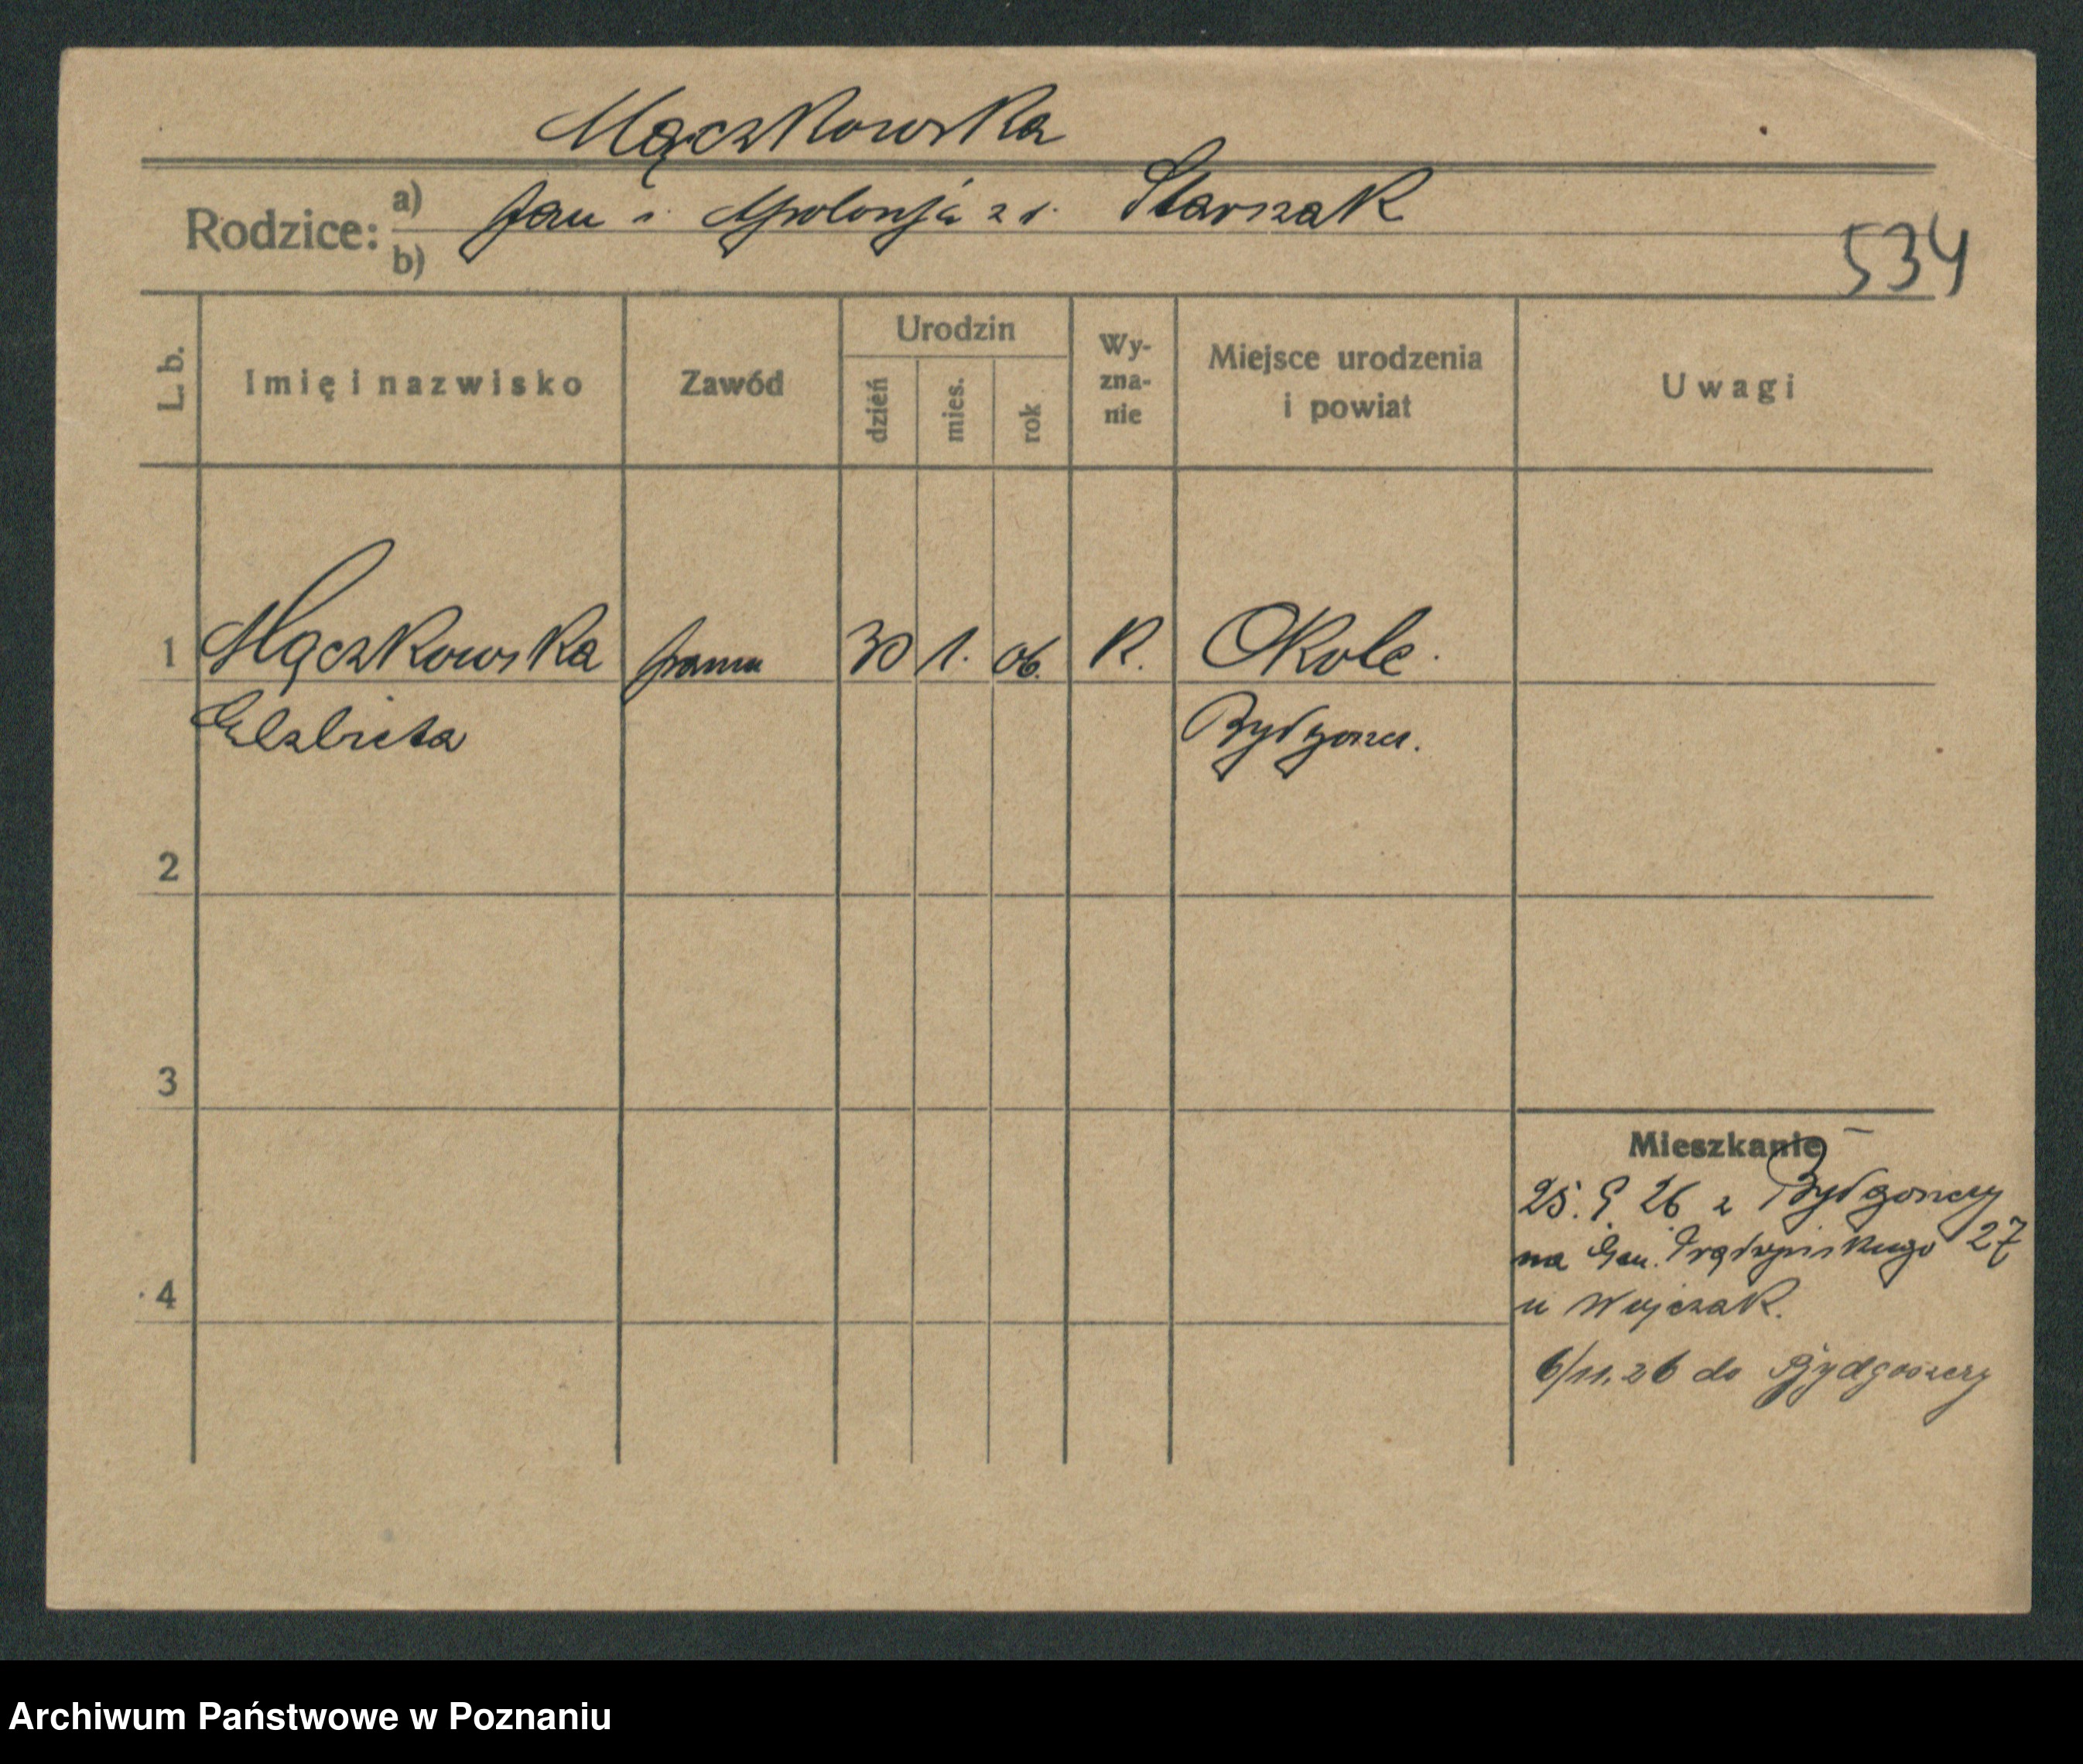 Mączkowska
Rodzice: a) Jan i Apolonja z d. Starszak
b)
534
L. b.
Imię i nazwisko
Zawód
Urodzin
dzień
mies.
rok
Wy-
zna-
nie
Miejsce urodzenia
i powiat
Uwagi
1 Mączkowska panna 30 1. 06. K. Okole.
Elzbieta Bydgoszcz.
2
3
4
Mieszkanie
25. 9 26 z Bydgoszczy
na Gen. Prądzyńskiego 27
u Wojczak.
6/11.26 do Bydgoszczy
Archiwum Państwowe w Poznaniu